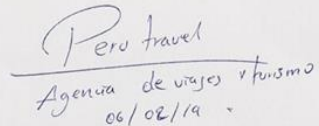 Peru travel
Agencia de viajes y turismo
06/02/19